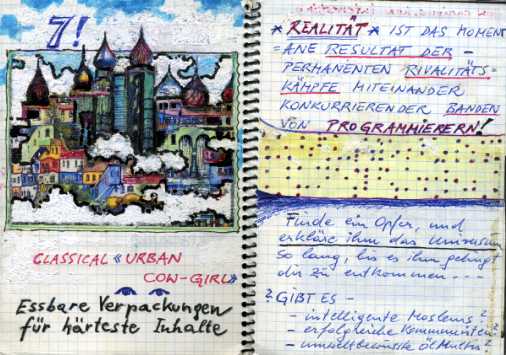 7!
CLASSICAL «URBAN
COW-GIRL»
Essbare Verpackungen
für härteste Inhalte
* REALITÄT * IST DAS MOMENT
=ANE RESULTAT DER -
PERMANENTEN RIVALITÄTS-
KÄMPFE MITEINANDER
KONKURRIERENDER BANDEN
VON PROGRAMMIERERN!
Finde ein Opfer, und
erkläre ihm das
so lang, bis es ihm gelingt
dir zu entkommen ---
? GIBT ES -
- intelligente Moslems?
- erfolgreiche Kommunisten?
- umweltbewusste ?